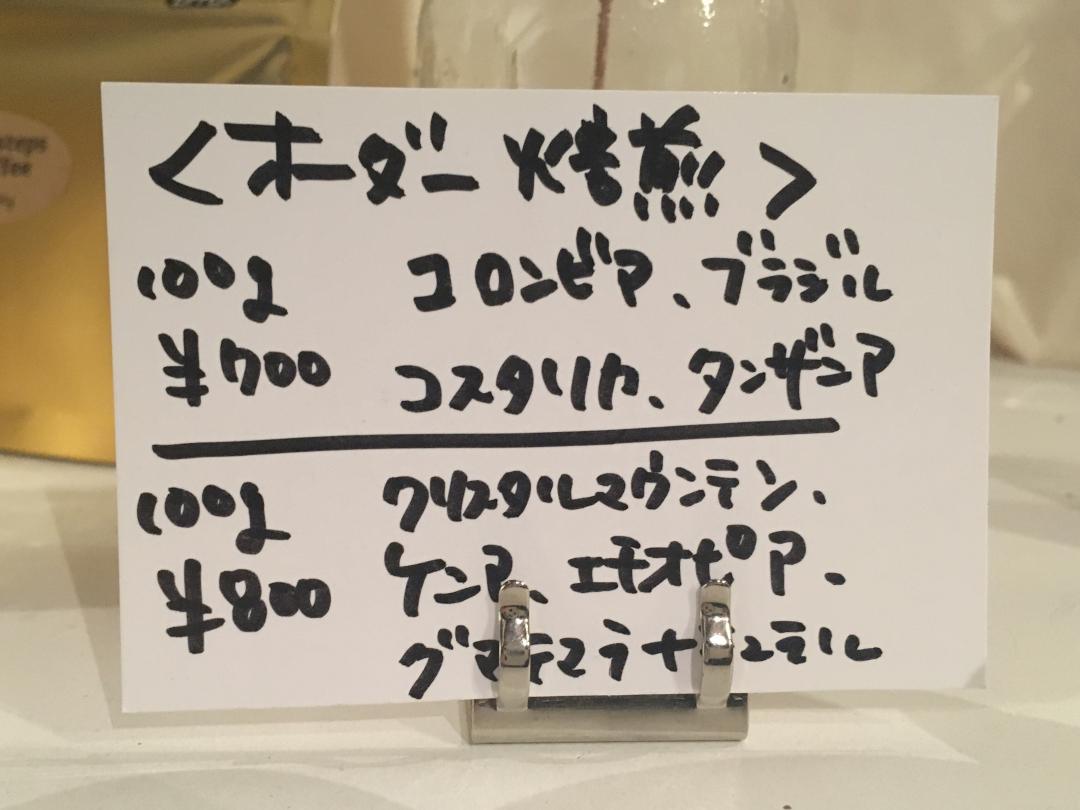 <オーダー焙煎>
100g コロンビア、ブラジル
¥700 コスタリカ、タンザニア
100g クリスタルマウンテン、
¥800 ケニア、エチオピア、
グアテマラナチュラル